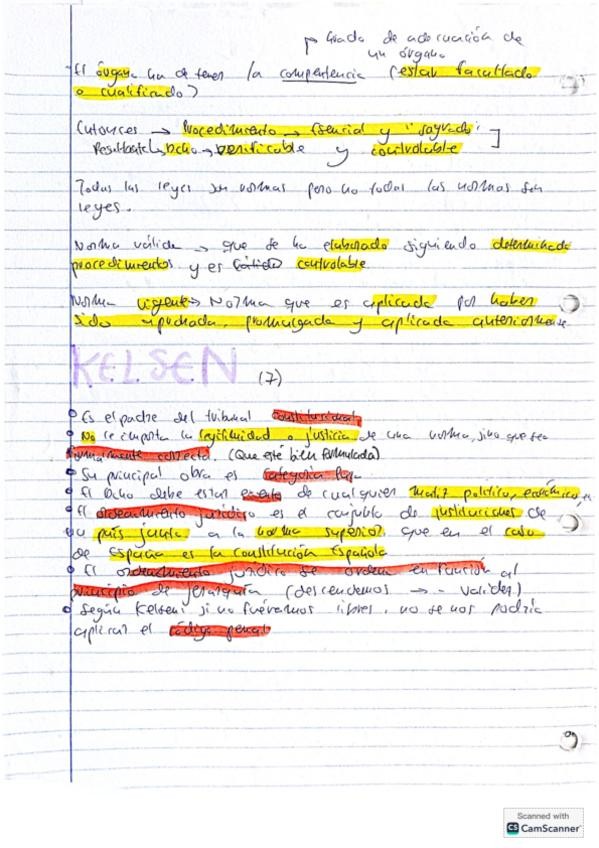 Grado de adecuación de
un órgano
El órgano ha de tener la competencia (estar facultado
o cualificado)
Entonces → Procedimiento → Esencial y "sagrado"
Resultante → Dcho → verificable y controlable
Todas las leyes son normas pero no todas las normas son
leyes.
Norma válida → que se ha elaborado siguiendo determinados
procedimientos y es controlable
Norma vigente → Norma que es aplicada por haber
sido aprobada, promulgada y aplicada anteriormente
KELSEN (7)
Es el padre del tribunal constitucional
No le importa la legitimidad o justicia de una norma, sino que sea
formalmente correcta. (Que esté bien formulada)
Su principal obra es
El Dcho debe estar exento de cualquier matiz político, económico,
El ordenamiento jurídico es el conjunto de instituciones de
un país junto a la norma superior, que en el caso
de España es la Constitución Española
El ordenamiento jurídico se ordena en función al
principio de jerarquía (descendemos → - validez)
Según Kelsen, si no fuéramos libres, no se nos podría
aplicar el código penal
Scanned with
CS CamScanner